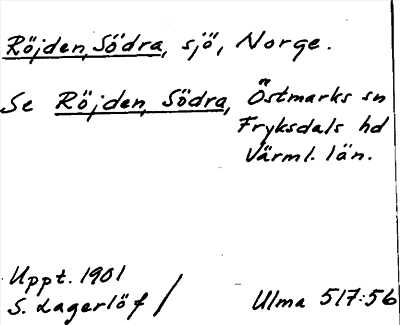 Röjden, Södra, sjö, Norge.
Se Röjden, Södra, Östmarks sn
Fryksdals hd
Värml. län.
Uppt. 1901
S. Lagerlöf /
Ulma 517:56